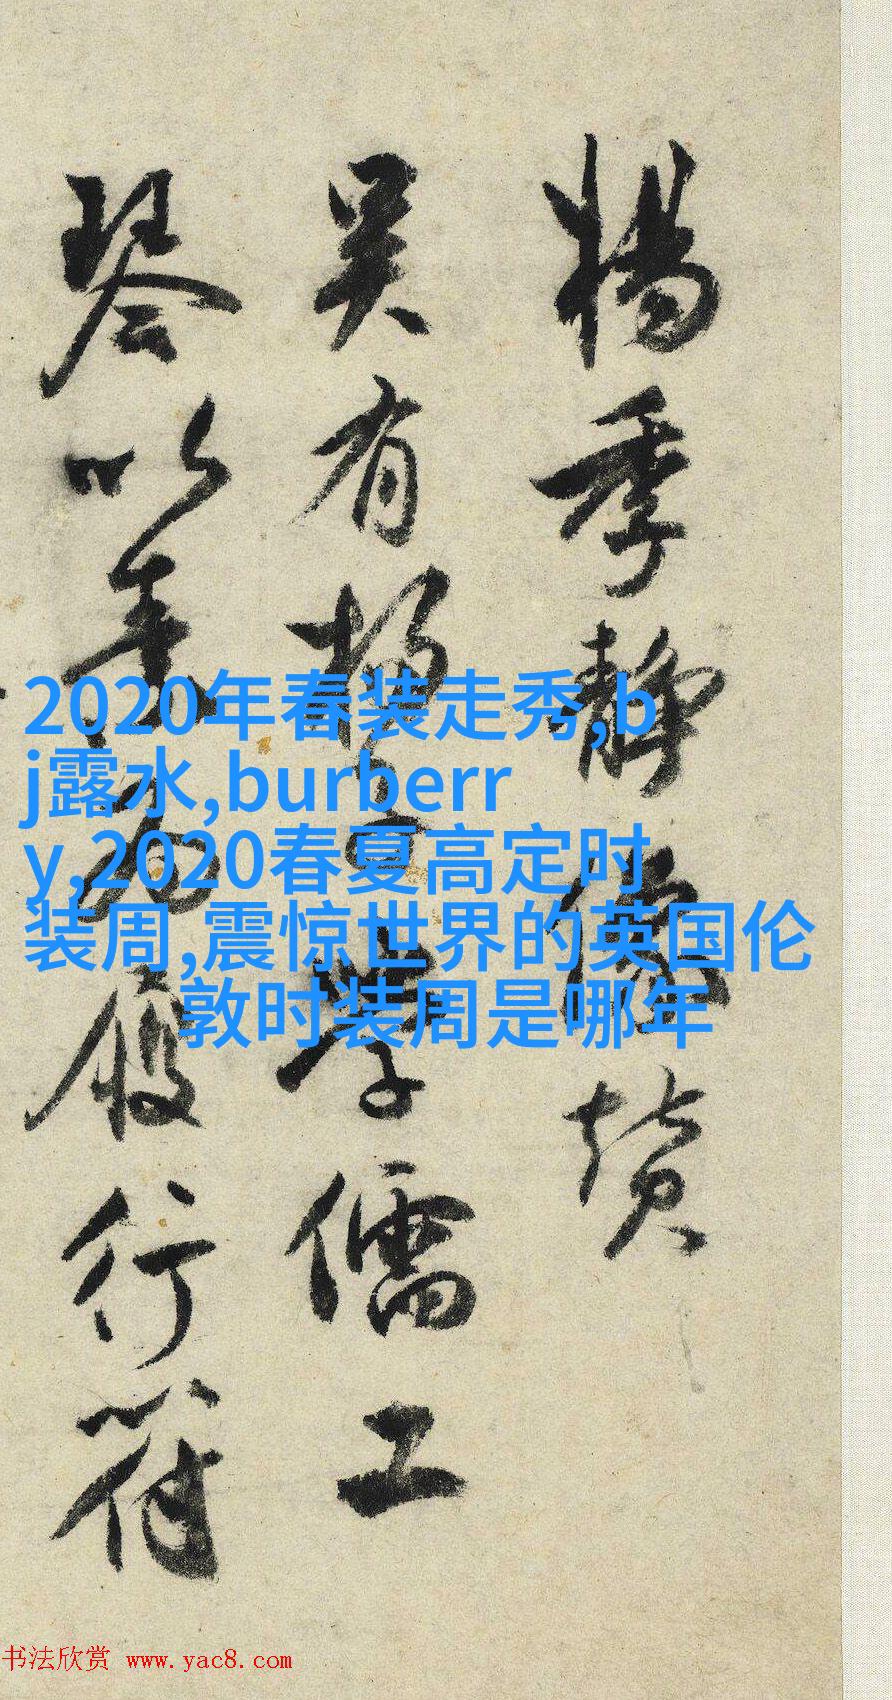 楊季静像賛
吴有楊子學儒工
琴以為履行符
2020年春装走秀,b
j露水,burberr
y,2020春夏高定时
装周,震惊世界的英国伦
敦时装周是哪年
书法欣赏 www.yac8.com